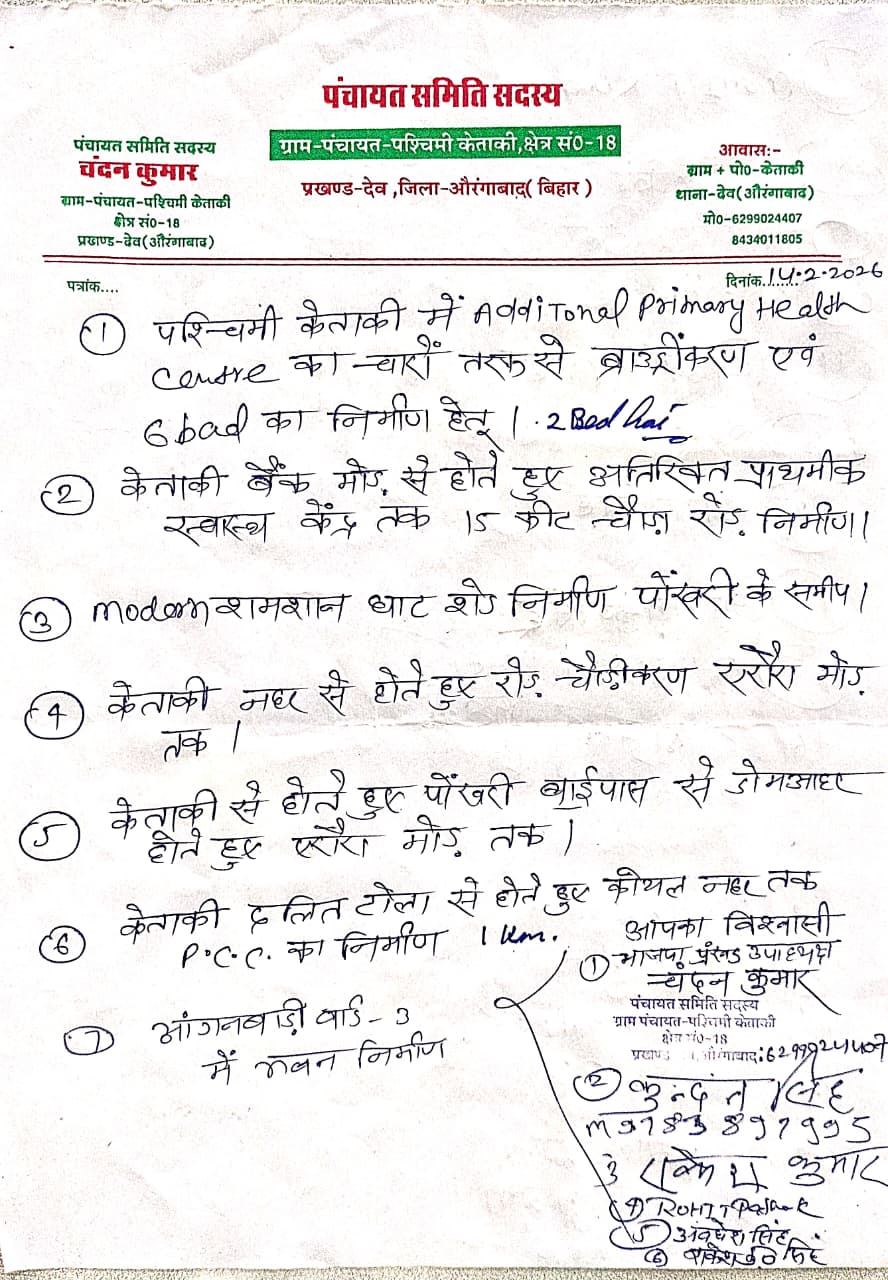 पंचायत समिति सदस्य
पंचायत समिति सदस्य
चंदन कुमार
ग्राम-पंचायत-पश्चिमी केताकी
क्षेत्र सं0-18
प्रखण्ड-देव(औरंगाबाद)
ग्राम-पंचायत-पश्चिमी केताकी,क्षेत्र सं0-18
प्रखण्ड-देव ,जिला-औरंगाबाद( बिहार )
आवासः-
ग्राम + पो0-केताकी
थाना-देव(औरंगाबाद)
मो0-6299024407
8434011805
पत्रांक....
दिनांक.14.2.2026
① पश्चिमी केताकी में Additonal Primary Health
Centre का चारों तरफ से ब्राउन्ड्रीकरण एवं
6 bad का निर्माण हेतू । . 2 Bed hai
② केताकी बैंक मोड़ से होते हुए अतिरिक्त प्राथमीक
स्वास्थ्य केंद्र तक 15 फीट चौड़ा रोड़ निर्माण।
③ modern शमशान घाट शेड निर्माण पोंखरी के समीप।
④ केताकी नहर से होते हुए रोड़ चौड़ीकरण एरौरा मोड़
तक ।
⑤ केताकी से होते हुए पोंखरी बाईपास से डोमआहर
होते हुए एरौरा मोड़ तक ।
⑥ केताकी दलित टोला से होते हुए कोयल नहर तक
P.C.C. का निर्माण 1 km.
⑦ आंगनबाड़ी वार्ड - 3
में भवन निर्माण
आपका विश्वासी
① भाजपा प्रंखड उपाध्यक्ष
चंदन कुमार
पंचायत समिति सदस्य
ग्राम पंचायत-पश्चिमी केताकी
क्षेत्र सं0-18
प्रखण्ड औरंगाबाद:6299024407
② कुन्दन सिंह
M 9783897995
3 राकेश कुमार
④ ROHIT Pathak
⑤ अवधेश सिंह
⑥ सिंह